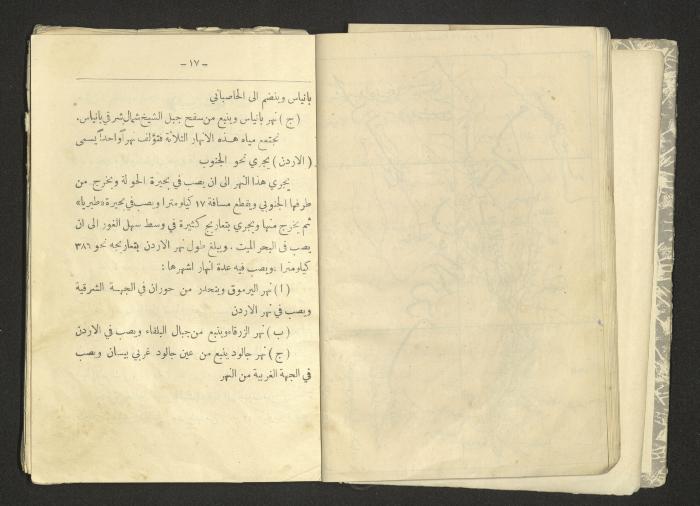 - ١٧ -
بانياس وينضم الى الحاصباني
( ج ) نهر بانياس وينبع من سفح جبل الشيخ شمال شرقي بانياس.
تجتمع مياه هذه الانهار الثلاثة فتؤلف نهراً واحداً يسمى
( الاردن ) يجري نحو الجنوب
يجري هذا النهر الى ان يصب في بحيرة الحولة ويخرج من
طرفها الجنوبي ويقطع مسافة ١٧ كيلومترا ويصب في بحيرة «طبريا»
ثم يخرج منها ويجري بتعاريج كثيرة في وسط سهل الغور الى ان
يصب في البحر الميت . ويبلغ طول نهر الاردن بتعاريجه نحو ٣٨٦
كيلومترا ، ويصب فيه عدة انهار اشهرها :
( ا ) نهر اليرموق وينحدر من حوران في الجهة الشرقية
ويصب في نهر الاردن
( ب ) نهر الزرقاء وينبع من جبال البلقاء ويصب في الاردن
( ج ) نهر جالود ينبع من عين جالود غربي بيسان ويصب
في الجهة الغربية من النهر